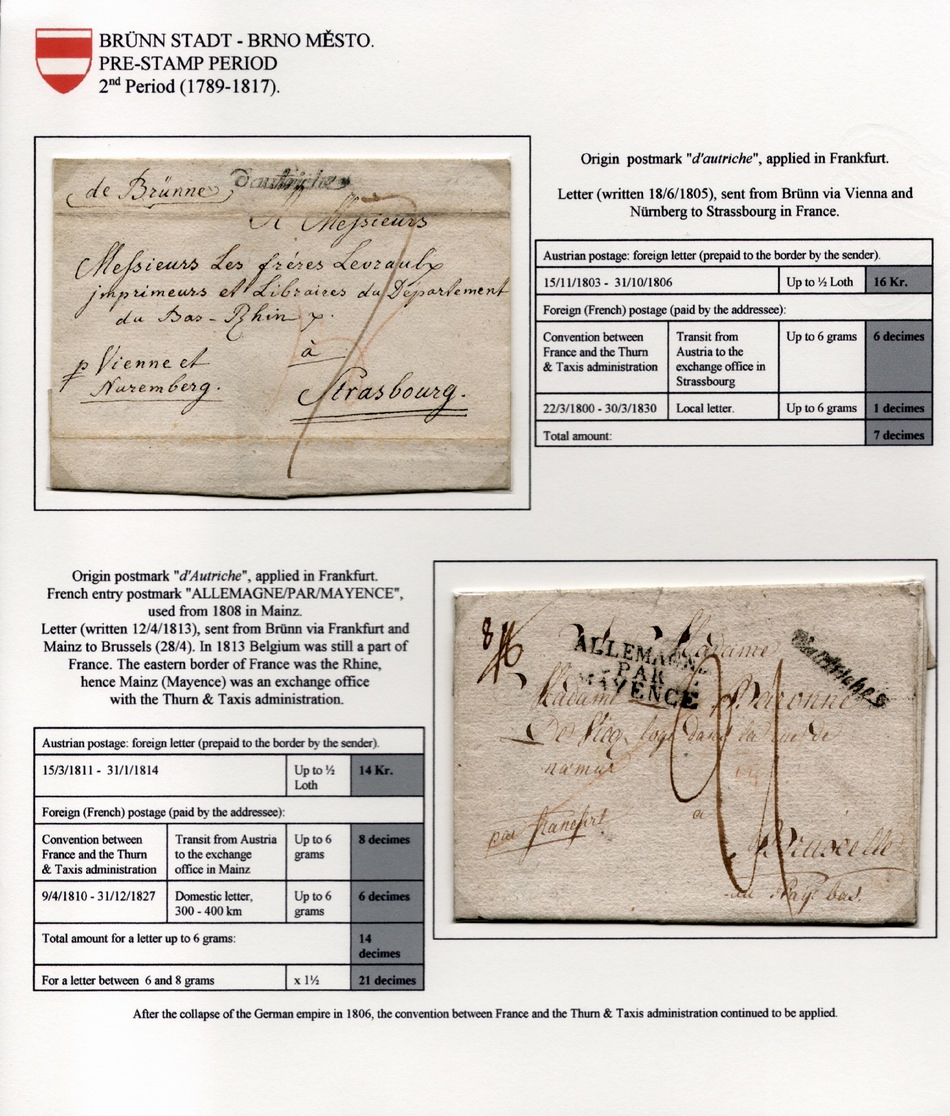 BRÜNN STADT - BRNO MĚSTO.
PRE-STAMP PERIOD
2nd Period (1789-1817).
de Brünne
d'autriche
A Messieurs
Messieurs Les frères Levrault
imprimeurs et Libraires du Département
du Bas-Rhin
à
p Vienne et
Nuremberg.
Strasbourg.
7
Origin postmark "d'autriche", applied in Frankfurt.
Letter (written 18/6/1805), sent from Brünn via Vienna and
Nürnberg to Strassbourg in France.
Austrian postage: foreign letter (prepaid to the border by the sender).
15/11/1803 - 31/10/1806 Up to ½ Loth 16 Kr.
Foreign (French) postage (paid by the addressee):
Convention between France and the Thurn & Taxis administration Transit from Austria to the exchange office in Strassbourg Up to 6 grams 6 decimes
22/3/1800 - 30/3/1830 Local letter. Up to 6 grams 1 decimes
Total amount: 7 decimes
Origin postmark "d'Autriche", applied in Frankfurt.
French entry postmark "ALLEMAGNE/PAR/MAYENCE",
used from 1808 in Mainz.
Letter (written 12/4/1813), sent from Brünn via Frankfurt and
Mainz to Brussels (28/4). In 1813 Belgium was still a part of
France. The eastern border of France was the Rhine,
hence Mainz (Mayence) was an exchange office
with the Thurn & Taxis administration.
Austrian postage: foreign letter (prepaid to the border by the sender).
15/3/1811 - 31/1/1814 Up to ½ Loth 14 Kr.
Foreign (French) postage (paid by the addressee):
Convention between France and the Thurn & Taxis administration Transit from Austria to the exchange office in Mainz Up to 6 grams 8 decimes
9/4/1810 - 31/12/1827 Domestic letter, 300 - 400 km Up to 6 grams 6 decimes
Total amount for a letter up to 6 grams: 14 decimes
For a letter between 6 and 8 grams x 1½ 21 decimes
8
ALLEMAGNE
PAR
MAYENCE
d'autriche
Madame
Madame
dans la rue de
namur
par francfort
a
Bruxelle
Pays bas.
After the collapse of the German empire in 1806, the convention between France and the Thurn & Taxis administration continued to be applied.